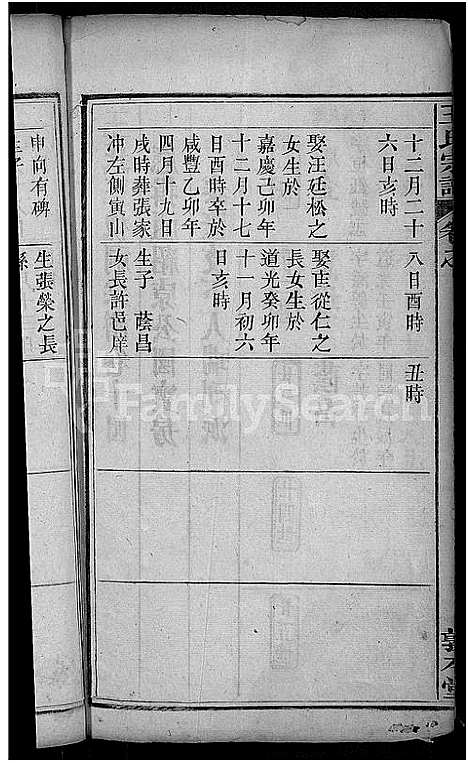 王氏宗譜
卷之
敦本堂
十二月二十
六日亥時
娶汪廷松之
女生於
嘉慶己卯年
十二月十七
日酉時卒於
咸豐乙卯年
四月十九日
戌時葬張家
冲左側寅山
八日酉時
娶崔從仁之
長女生於
道光癸卯年
十一月初六
日亥時
生子 蔭昌
女長許邑庠
丑時
申向有碑
生張榮之長
孫
FamilySearch